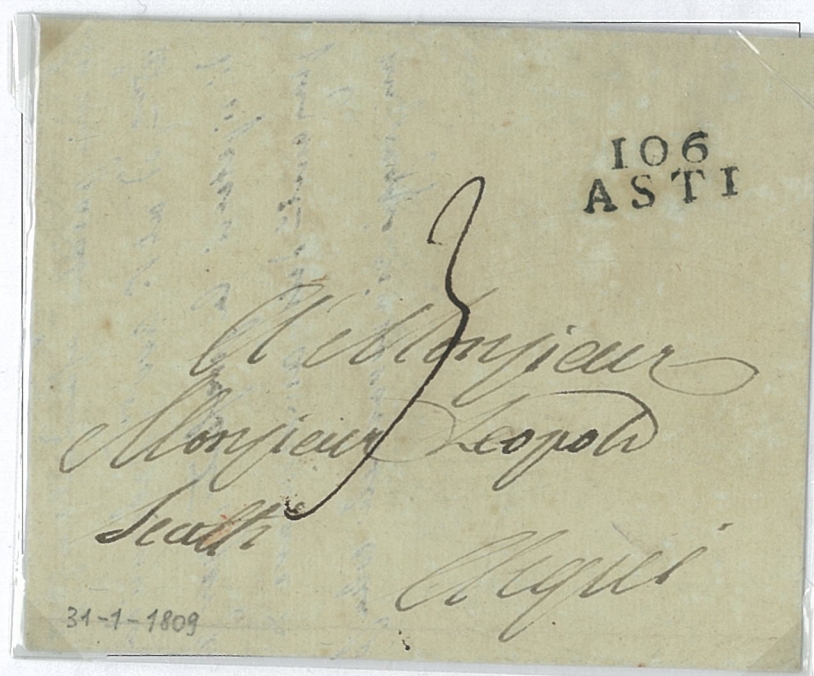 106
ASTI
3
A Monsieur
Monsieur Leopold
Acqui
31-1-1809